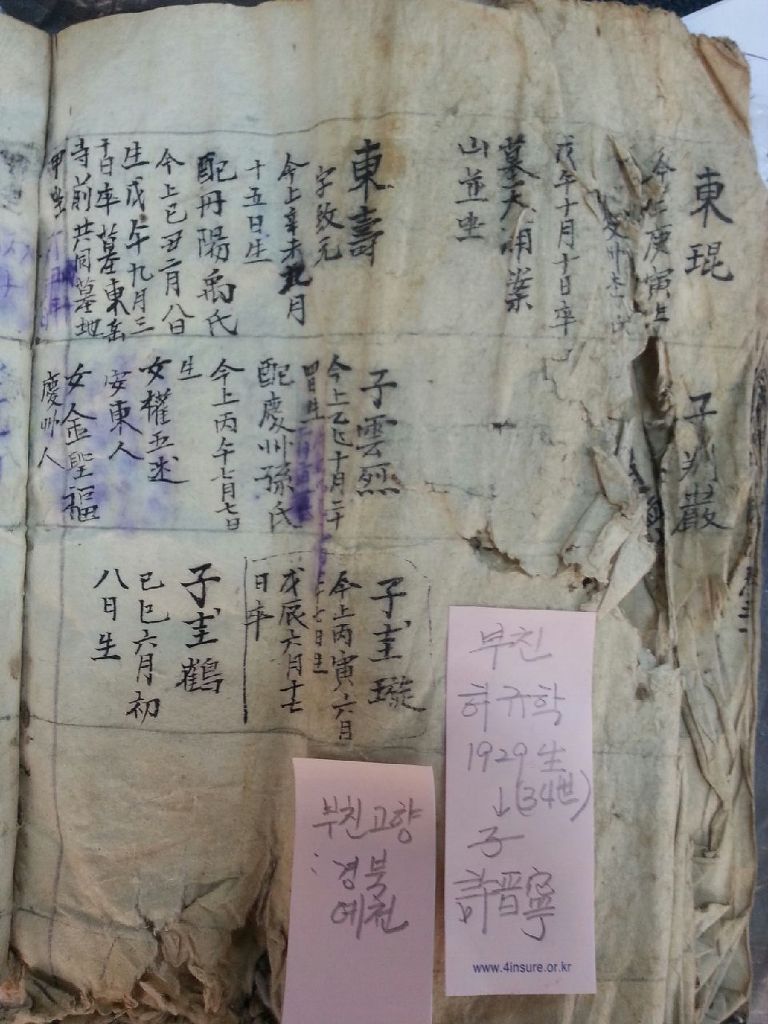 東琨
今上庚寅
戊午十月十日卒
墓天湖業
山並坐
東壽
字致元
今上辛未九月
十五日生
配丹陽禹氏
今上己丑二月八日
生戊午九月三
十日卒墓東岳
寺前共同墓地
甲坐
子
巖
子雲烈
今上乙巳十月二十
四日生
配慶州孫氏
今上丙午七月七日
生
女權五述
安東人
女金聖福
慶州人
子圭璇
今上丙寅六月
七日生
戊辰六月十七
日卒
子圭鶴
己巳六月初
八日生
부친
허규학
1929生
↓(34世)
子
許晋寧
www.4insure.or.kr
부친고향
: 경북
예천